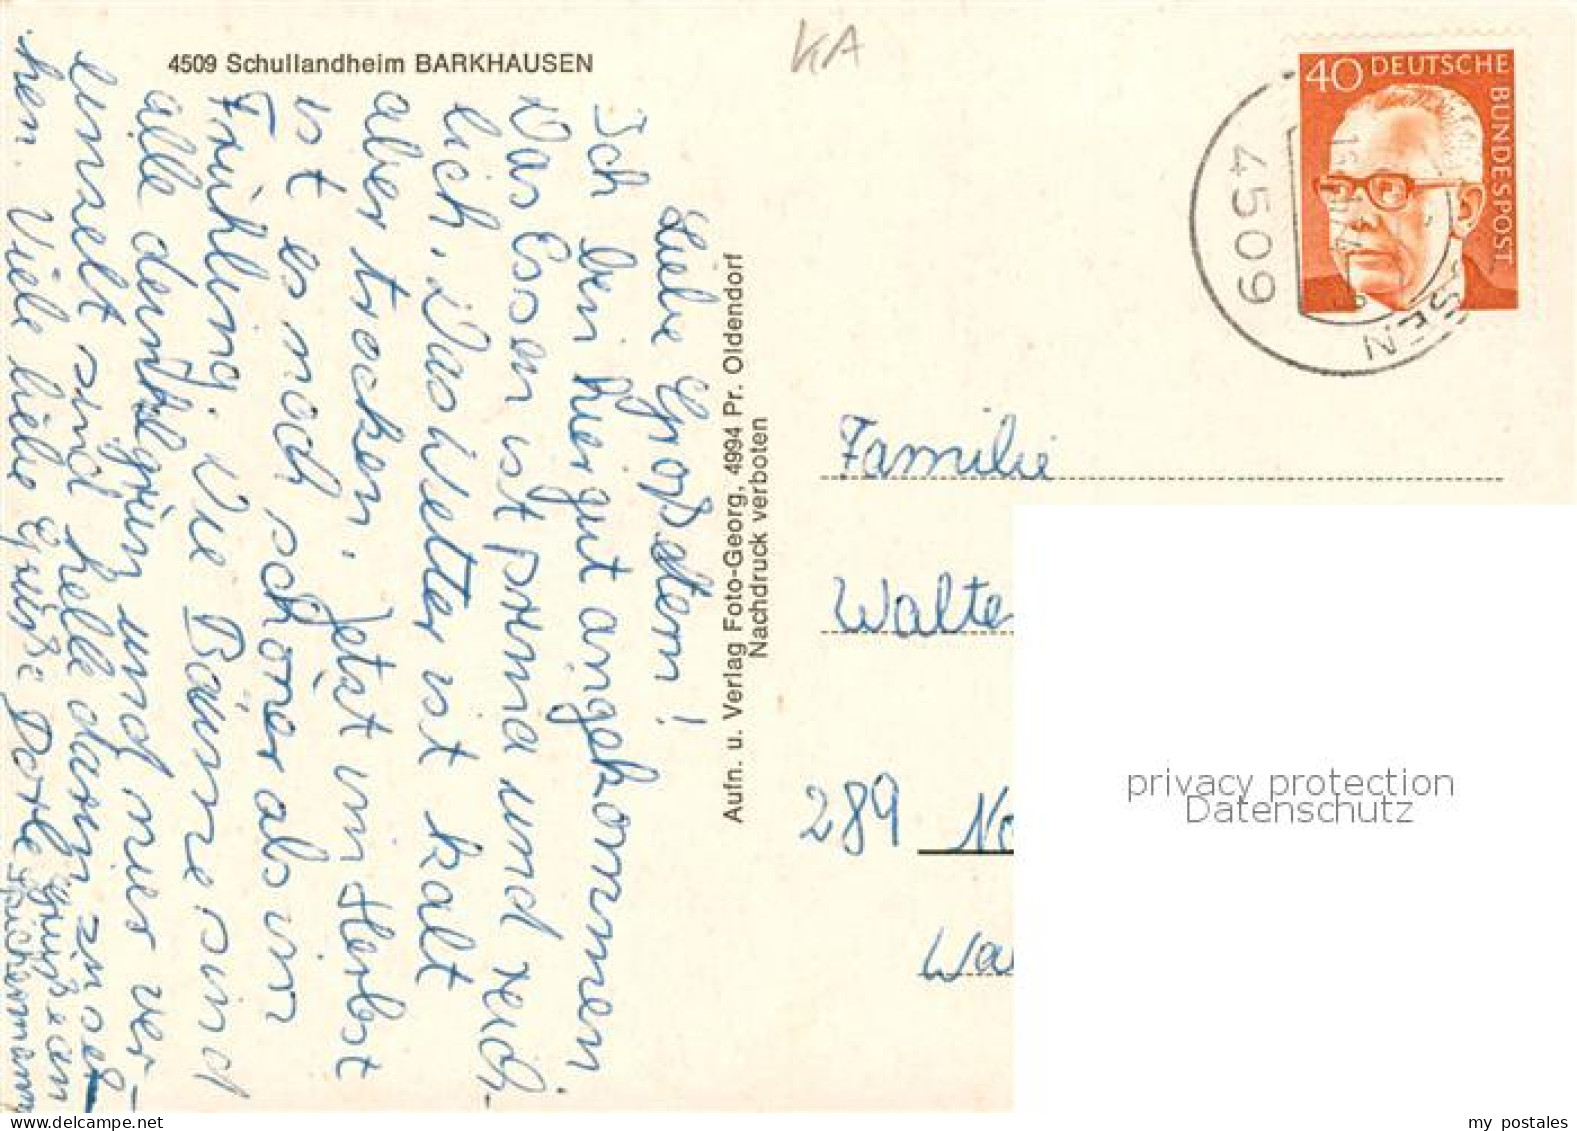 4509 Schullandheim BARKHAUSEN
KA
Liebe Großeltern!
Ich bin hier gut angekommen
Das Essen ist prima und reich-
lich. Das Wetter ist kalt
aber trocken. Jetzt im Herbst
ist es noch schöner als im
Frühling. Die Bäume sind
alle dunkelgrün und hier ver-
einzelt sind helle darin zu seh-
hen. Viele liebe Grüße Dörte
Grüße an
Aufn. u. Verlag Foto-Georg, 4994 Pr. Oldendorf
Nachdruck verboten
40 DEUTSCHE
BUNDESPOST
4509
SEN
Familie
Walte
289 No
Wa
privacy protection
Datenschutz
my postales